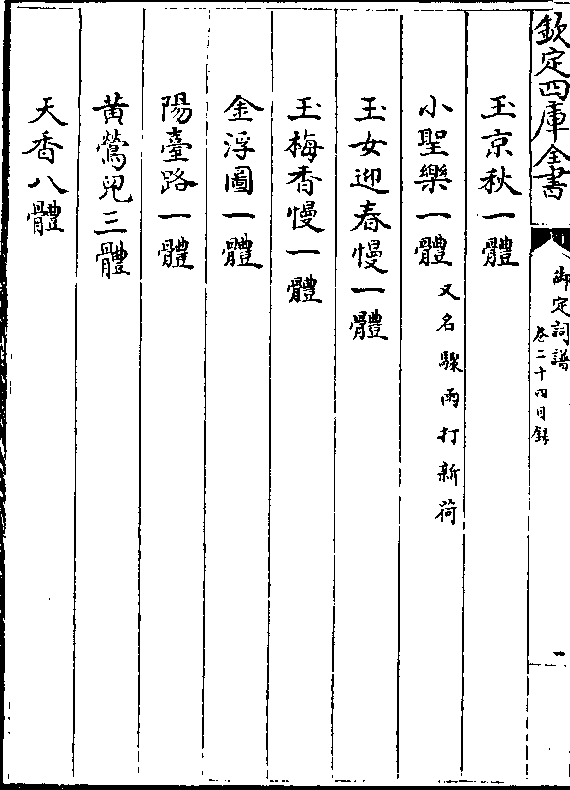 欽定四庫全書
御定詞譜
卷二十四目錄
一
玉京秋一體
小聖樂一體 又名驟雨打新荷
玉女迎春慢一體
玉梅香慢一體
金浮圖一體
陽臺路一體
黃鶯兒三體
天香八體